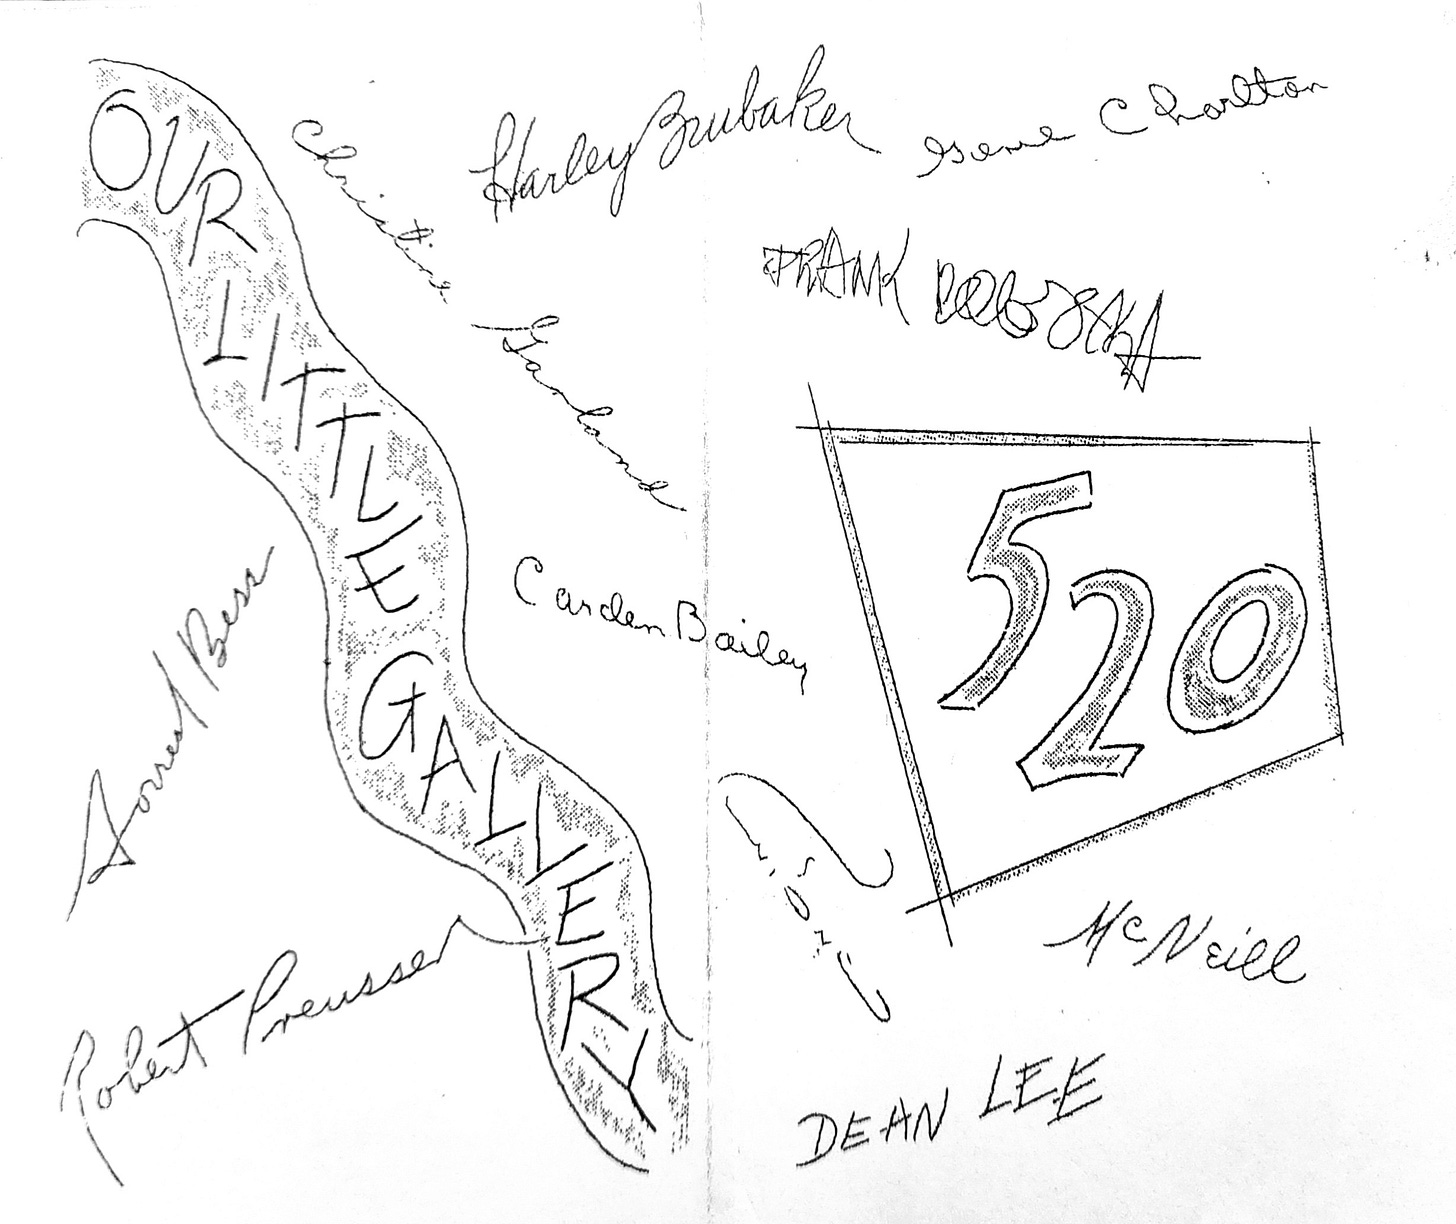 OUR LITTLE GALLERY
Christine Garland
Harley Brubaker
Gene Charlton
FRANK DOLEJSKA
Carden Bailey
520
Forrest Bess
Robert Preusser
McNeill
DEAN LEE